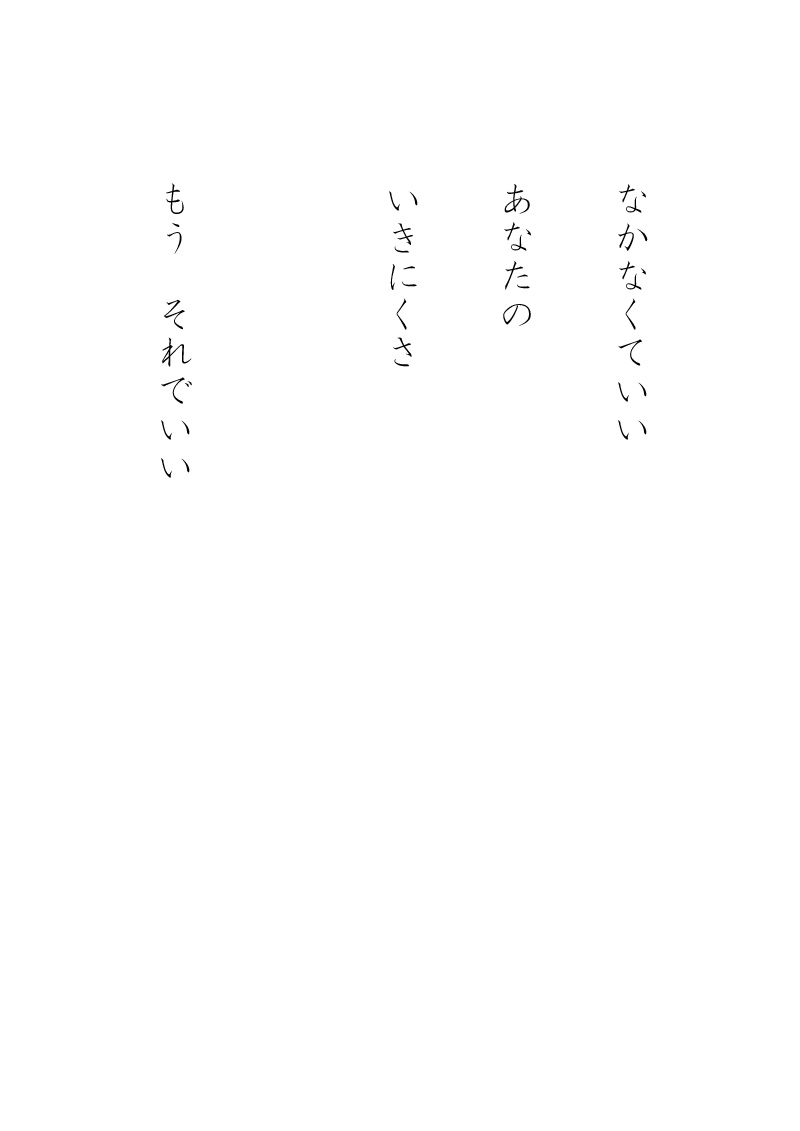 なかなくていい
あなたの
いきにくさ
もう　それでいい